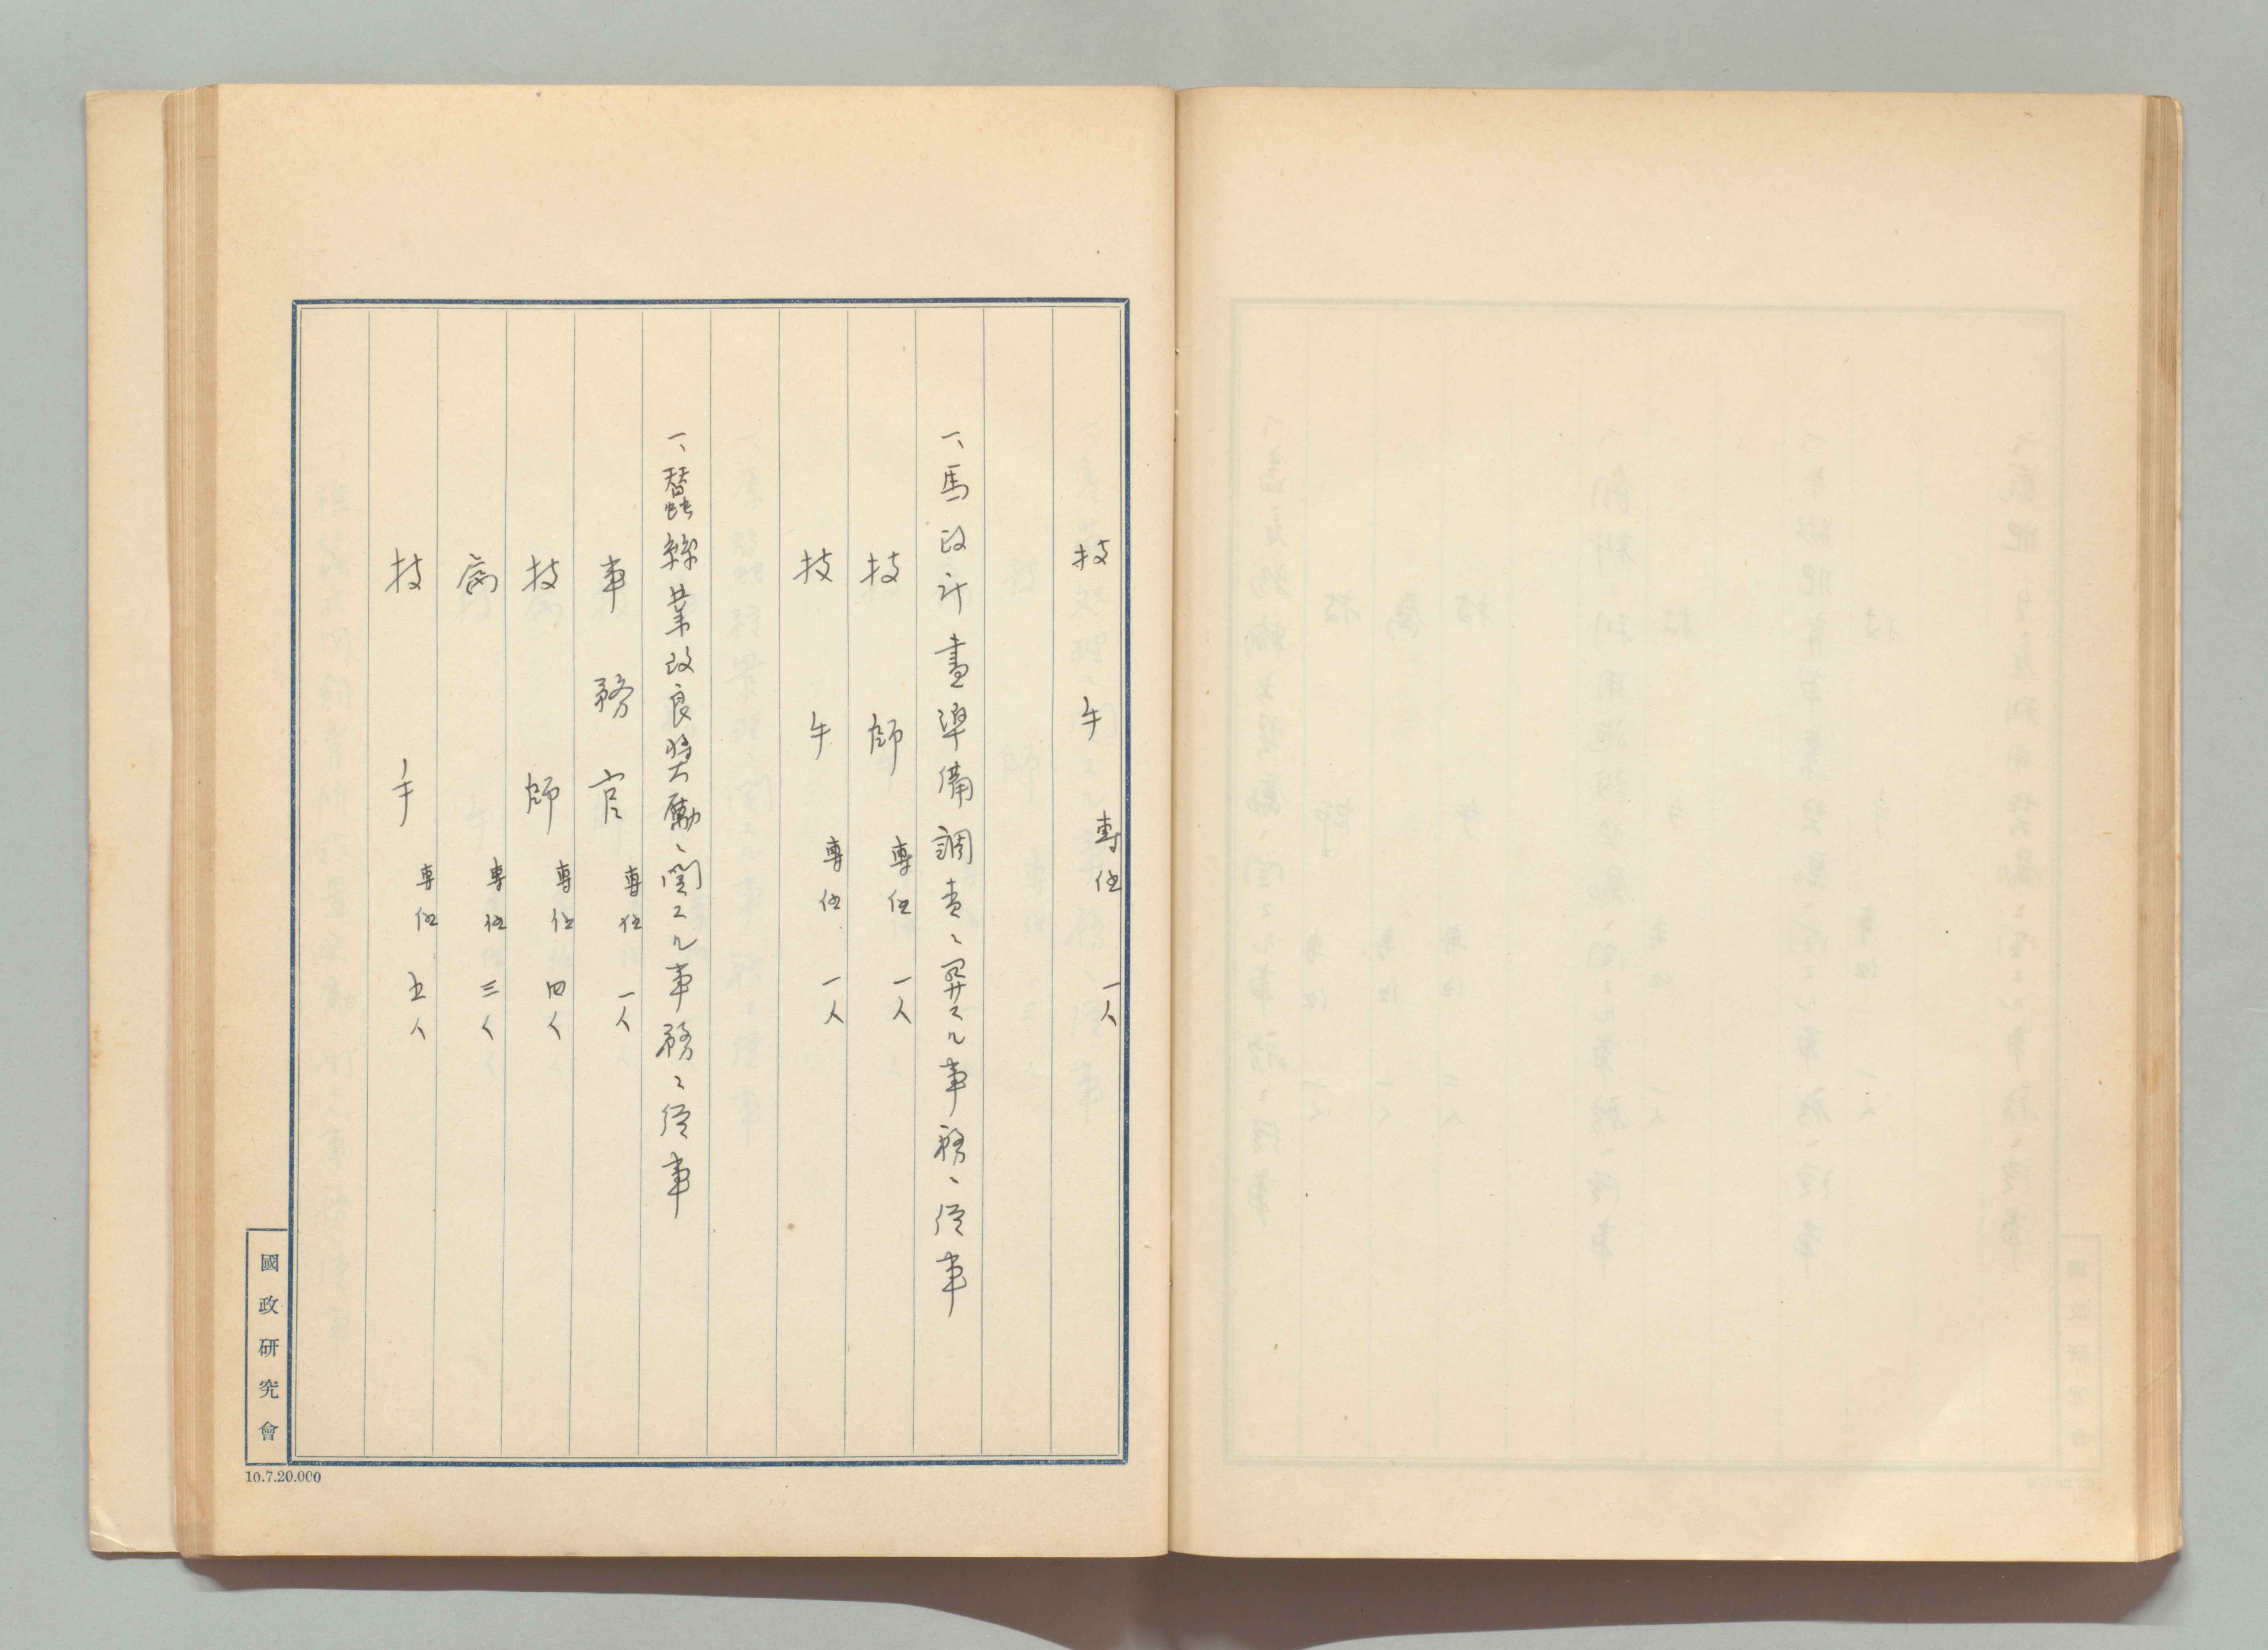 技手 専任 一人
一、馬政計畫準備調査ニ関スル事務ニ従事
技師 専任 一人
技手 専任 一人
一、蠶絲業改良奨励ニ関スル事務ニ従事
事務官 専任 一人
技師 専任 四人
属 専任 三人
技手 専任 五人
國政研究會
10.7.20.000